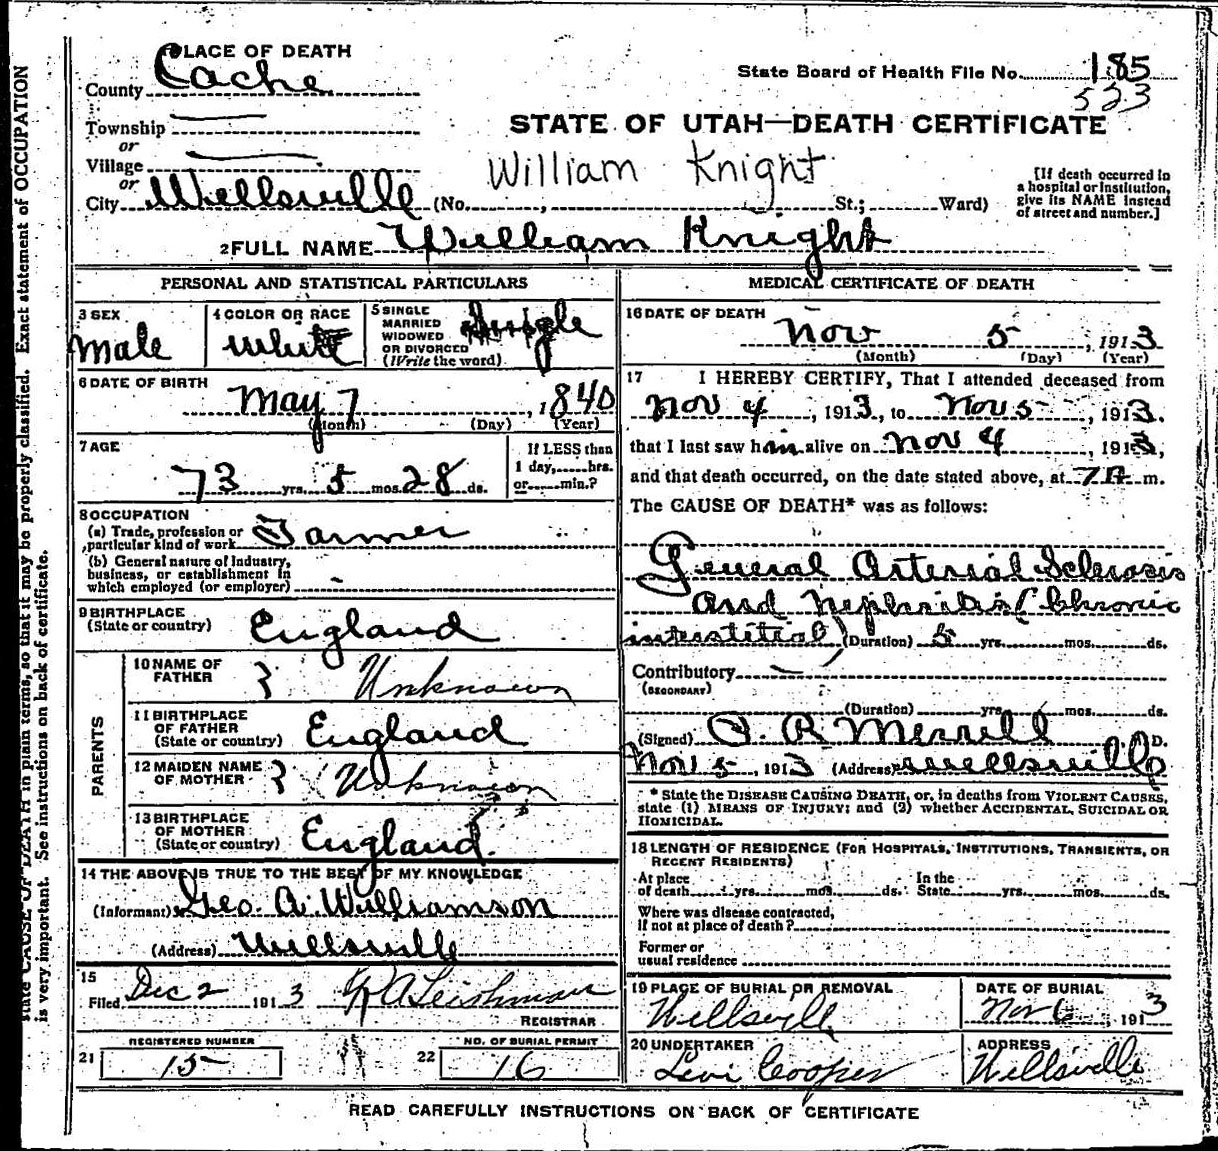 PLACE OF DEATH
County Cache
State Board of Health File No. 185
523
Township
or
Village
or
City Wellsville (No. , St.; Ward)
STATE OF UTAH—DEATH CERTIFICATE
William Knight
[If death occurred in
a hospital or institution,
give its NAME instead
of street and number.]
2 FULL NAME William Knight
PERSONAL AND STATISTICAL PARTICULARS
3 SEX
Male
4 COLOR OR RACE
White
5 SINGLE
MARRIED
WIDOWED
OR DIVORCED
(Write the word)
Single
6 DATE OF BIRTH
May 7, 1840
(Month) (Day) (Year)
7 AGE
73 yrs. 5 mos. 28 ds.
If LESS than
1 day, hrs.
or min.?
8 OCCUPATION
(a) Trade, profession or
particular kind of work Farmer
(b) General nature of Industry,
business, or establishment in
which employed (or employer) -
9 BIRTHPLACE
(State or country) England
PARENTS
10 NAME OF
FATHER } Unknown
11 BIRTHPLACE
OF FATHER
(State or country) England
12 MAIDEN NAME
OF MOTHER } Unknown
13 BIRTHPLACE
OF MOTHER
(State or country) England
14 THE ABOVE IS TRUE TO THE BEST OF MY KNOWLEDGE
(Informant) Geo. A. Williamson
(Address) Wellsville
15
Filed Dec 2 1913 Leishman
REGISTRAR
REGISTERED NUMBER
21 15
NO. OF BURIAL PERMIT
22 16
MEDICAL CERTIFICATE OF DEATH
16 DATE OF DEATH
Nov 5, 1913
(Month) (Day) (Year)
17 I HEREBY CERTIFY, That I attended deceased from
Nov 4, 1913, to Nov 5, 1913.
that I last saw him alive on Nov 4, 1913,
and that death occurred, on the date stated above, at 7 A m.
The CAUSE OF DEATH* was as follows:
General Arterial Sclerosis
and Nephritis (Chronic
interstitial) (Duration) 5 yrs. mos. ds.
Contributory
(SECONDARY)
(Duration) yrs. mos. ds.
(Signed) Merrill D.
Nov 5, 1913 (Address) Wellsville
* State the DISEASE CAUSING DEATH, or, in deaths from VIOLENT CAUSES,
state (1) MEANS OF INJURY; and (2) whether ACCIDENTAL, SUICIDAL OR
HOMICIDAL.
18 LENGTH OF RESIDENCE (FOR HOSPITALS, INSTITUTIONS, TRANSIENTS, OR
RECENT RESIDENTS)
At place
of death yrs. mos. ds.
In the
State yrs. mos. ds.
Where was disease contracted,
If not at place of death?
Former or
usual residence
19 PLACE OF BURIAL OR REMOVAL
Wellsville
DATE OF BURIAL
Nov 6, 1913
20 UNDERTAKER
Levi Cooper
ADDRESS
Wellsville
READ CAREFULLY INSTRUCTIONS ON BACK OF CERTIFICATE
state CAUSE OF DEATH in plain terms, so that it may be properly classified. Exact statement of OCCUPATION
is very important. See instructions on back of certificate.